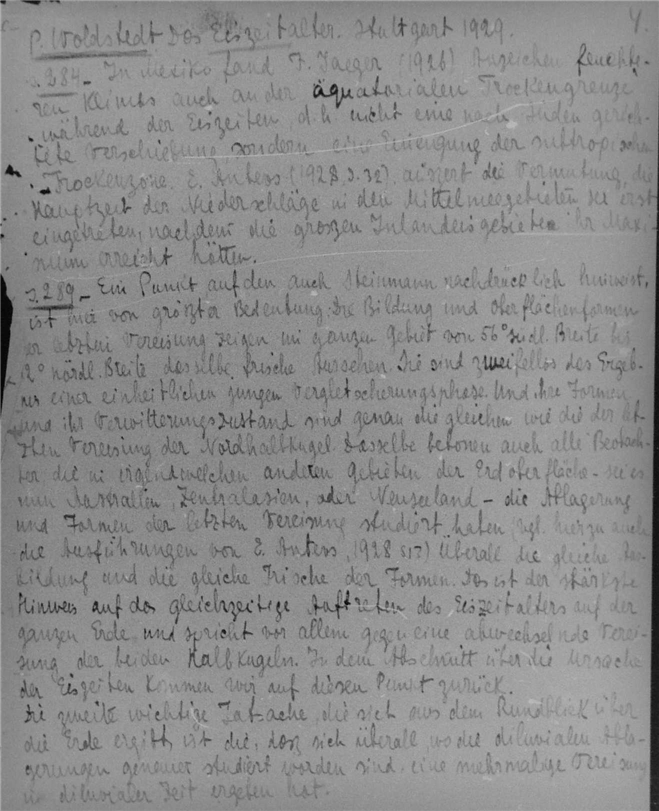 4.
P. Woldstedt Das Eiszeitalter. Stuttgart 1929.
s. 284 - In Mexiko fand F. Jaeger (1926) Anzeichen feuchte-
ren Klimas auch an der äquatorialen Trockengrenze
während der Eiszeiten, d.h. nicht eine nach Süden gerich-
tete Verschiebung, sondern eine Einengung der subtropischen
Trockenzone. E. Antevs (1928, s. 32) äuszert die Vermutung, die
Hauptzeit der Niederschläge in den Mittelmeergebieten sei erst
eingetreten, nachdem die groszen Inlandeisgebiete ihr Maxi-
mum erreicht hätten.
s. 289 - Ein Punkt auf den auch Steinmann nachdrücklich hinweist,
ist hier von gröszter Bedeutung: Die Bildung und Oberflächenformen
der letzten Vereisung zeigen im ganzen Gebiet von 56° südl. Breite bis
12° nördl. Breite dasselbe frische Aussehen. Sie sind zweifellos das Ergeb-
nis einer einheitlichen jungen Vergletscherungsphase. Und ihre Formen
und ihr Verwitterungszustand sind genau die gleichen wie die der letz-
ten Vereisung der Nordhalbkugel. Dasselbe betonen auch alle Beobach-
ter, die in irgendwelchen anderen Gebieten der Erdoberfläche - sei es
nun Australien, Zentralasien, oder Neuseeland - die Ablagerung
und Formen der letzten Vereisung studiert haben (vgl. hierzu auch
die Ausführungen von E. Antevs, 1928 Überall die gleiche Aus-
bildung und die gleiche Frische der Formen. Das ist der stärkste
Hinweis auf das gleichzeitige Auftreten des Eiszeitalters auf der
ganzen Erde und spricht vor allem gegen eine abwechselnde Verei-
sung der beiden Halbkugeln. In dem Abschnitt über die Ursache
der Eiszeiten kommen wir auf diesen Punkt zurück.
Die zweite wichtige Tatsache, die sich aus dem Rundblick über
die Erde ergibt, ist die, dasz sich überall, wo die diluvialen Abla-
gerungen genauer studiert worden sind, eine mehrmalige Vereisung
in diluvialer Zeit ergeben hat.